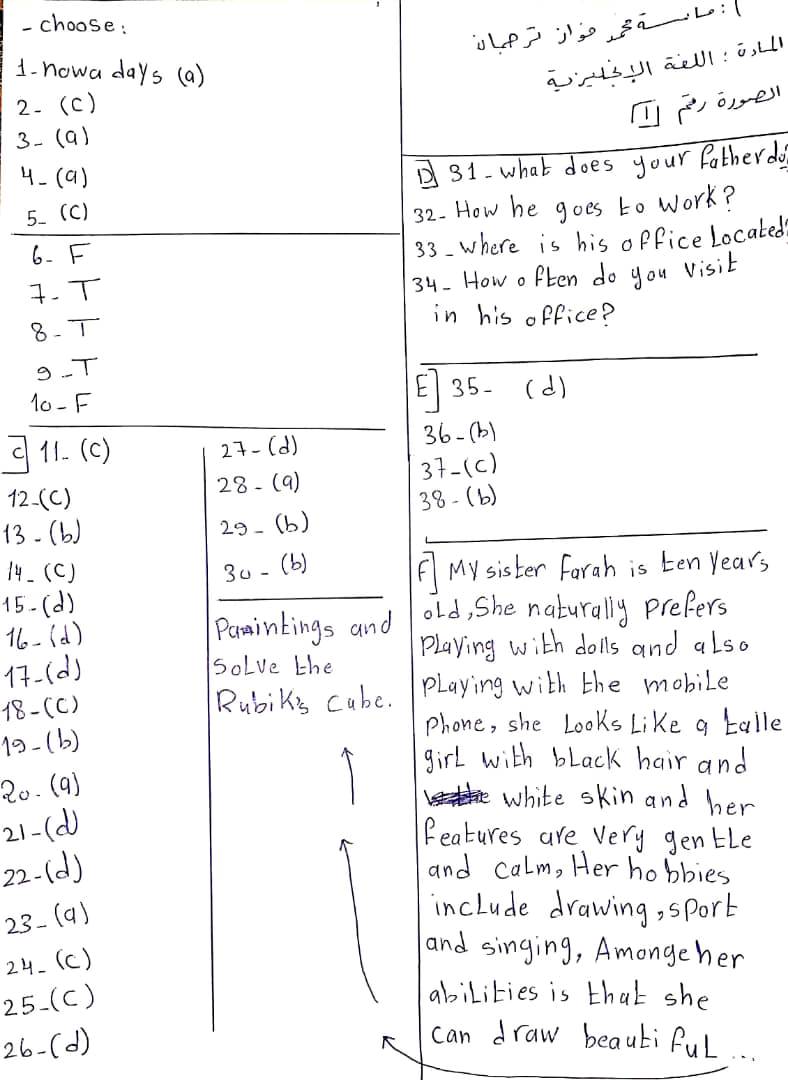 أ: ماسة محمد فواز ترجمان
المادة : اللغة الإنجليزية
الصورة رقم 1
- choose :
1- nowa days (a)
2- (c)
3- (a)
4- (a)
5- (c)
6- F
7- T
8- T
9- T
10- F
C] 11- (c)
12-(c)
13 - (b)
14- (c)
15-(d)
16-(d)
17-(d)
18-(c)
19-(b)
20. (a)
21-(d)
22-(d)
23-(a)
24- (c)
25-(c)
26-(d)
27-(d)
28- (a)
29- (b)
30 - (b)
D] 31 - what does your father do?
32- How he goes to work?
33 - where is his office Located?
34- How often do you visit
in his office?
E] 35- (d)
36-(b)
37-(c)
38-(b)
F] My sister Farah is ten years
old, She naturally prefers
playing with dolls and also
playing with the mobile
phone, she Looks Like a talle
girl with black hair and
white skin and her
features are very gentle
and calm, Her hobbies
include drawing, sport
and singing, Amonge her
abilities is that she
can draw beautiful ...
Paintings and
Solve the
Rubik's cube.